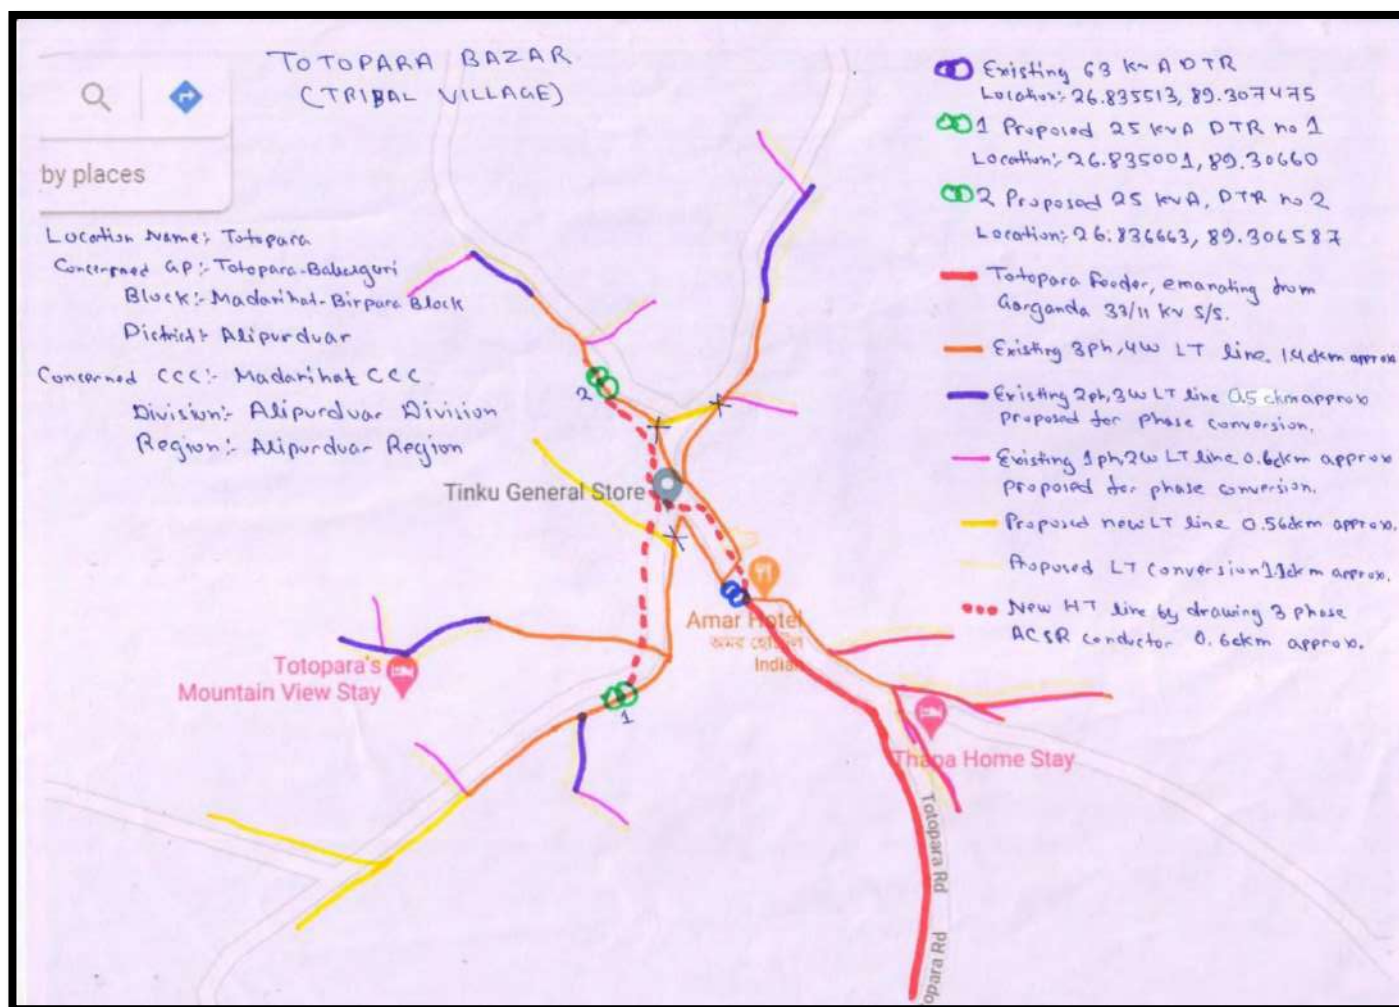 TOTOPARA BAZAR
(TRIBAL VILLAGE)
by places
Location Name:- Totopara
Concerned GP:- Totopara-Ballalguri
Block:- Madarihat-Birpara Block
District:- Alipurduar
Concerned CCC:- Madarihat CCC.
Division:- Alipurduar Division
Region:- Alipurduar Region
Existing 63 KVA DTR
Location:- 26.835513, 89.307475
1 Proposed 25 KVA DTR no 1
Location:- 26.835001, 89.30660
2 Proposed 25 KVA, DTR no 2
Location:- 26.836663, 89.306587
Totopara Feeder, emanating from
Garganda 33/11 KV S/S.
Existing 3ph, 4W LT line, 1.4ckm approx
Existing 2ph, 3W LT line 0.5 ckm approx
proposed for phase conversion.
Existing 1ph, 2W LT line 0.6ckm approx
proposed for phase conversion.
Proposed new LT line 0.56ckm approx.
Proposed LT conversion 1.1ckm approx.
New HT line by drawing 3 phase
ACSR conductor 0.6ckm approx.
2
Tinku General Store
Amar Hotel
অমর হোটেল
Indian
Totopara's
Mountain View Stay
1
Thapa Home Stay
Totopara Rd
opara Rd